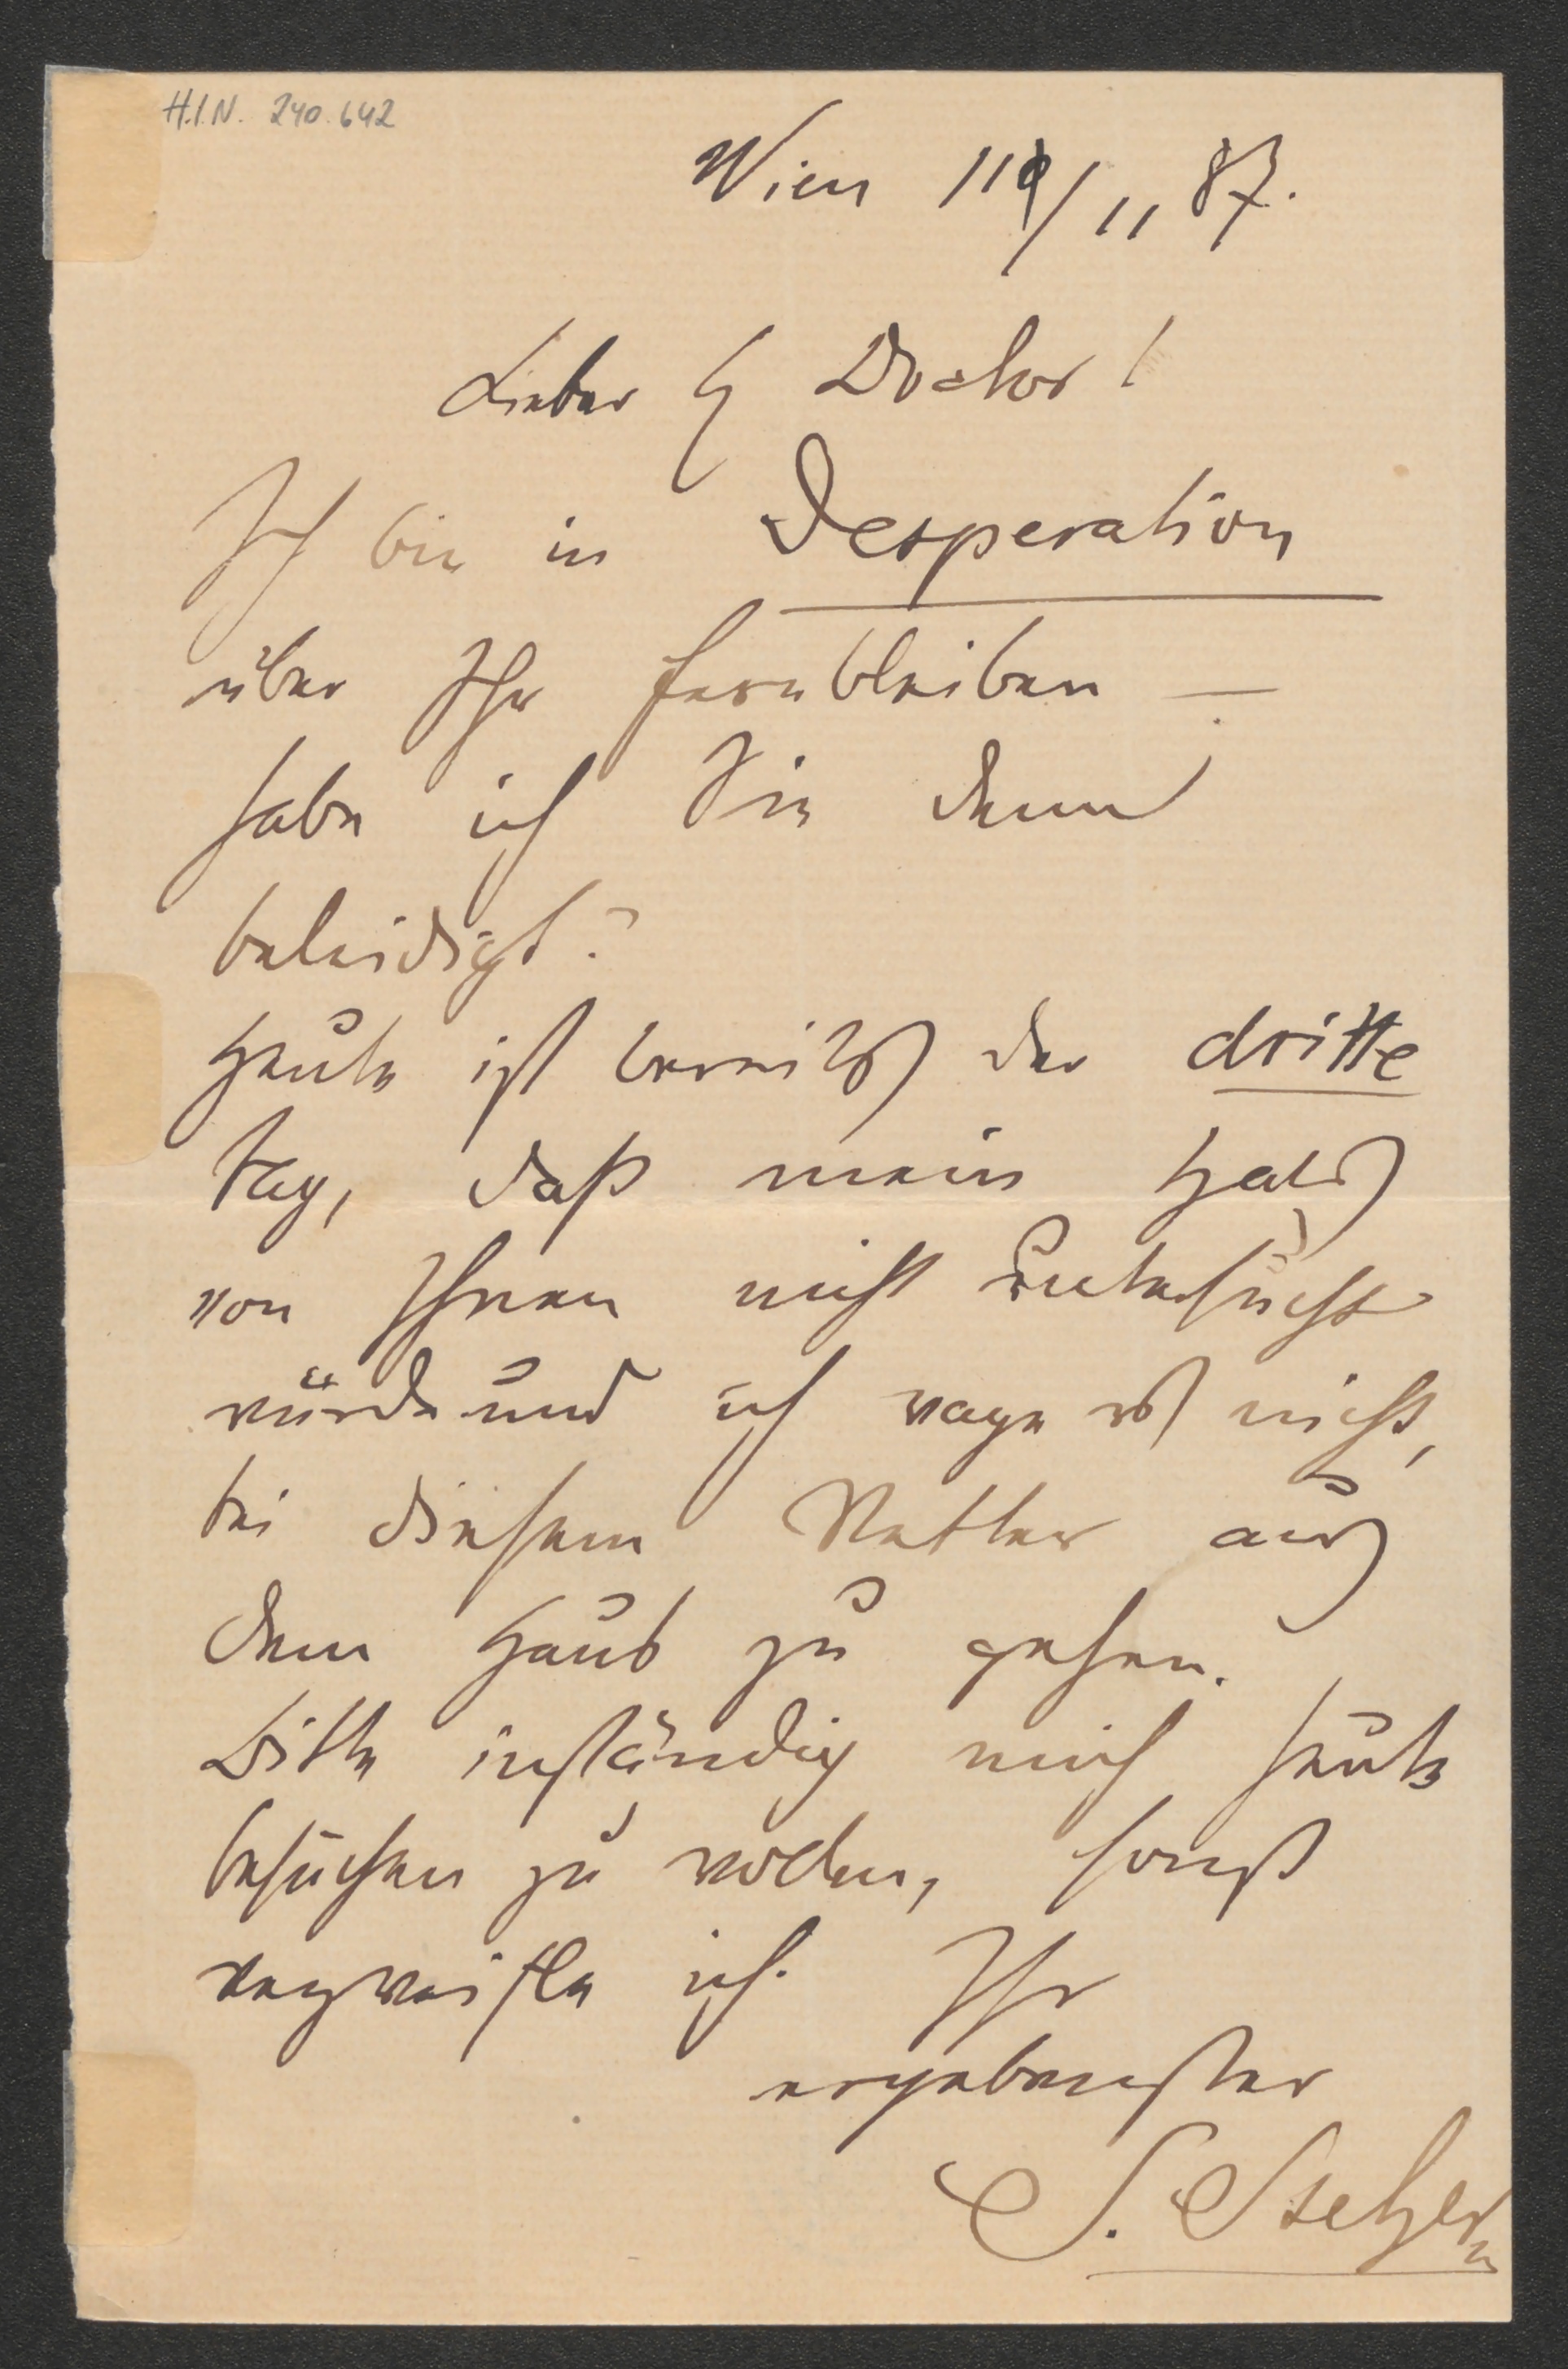 H.I.N. 240.642
Wien 11/11 87.
Lieber H Doctor!
Ich bin in Desperation
über Ihr fernbleiben —
habe ich Sie denn
beleidigt?
Heute ist bereits der dritte
Tag, daß mein Hals
von Ihnen nicht untersucht
würde und ich wage es nicht,
bei diesem Wetter aus
dem Haus zu gehen.
Bitte inständig mich heute
besuchen zu wollen, sonst
verzweifle ich. Ihr
ergebenster
S.